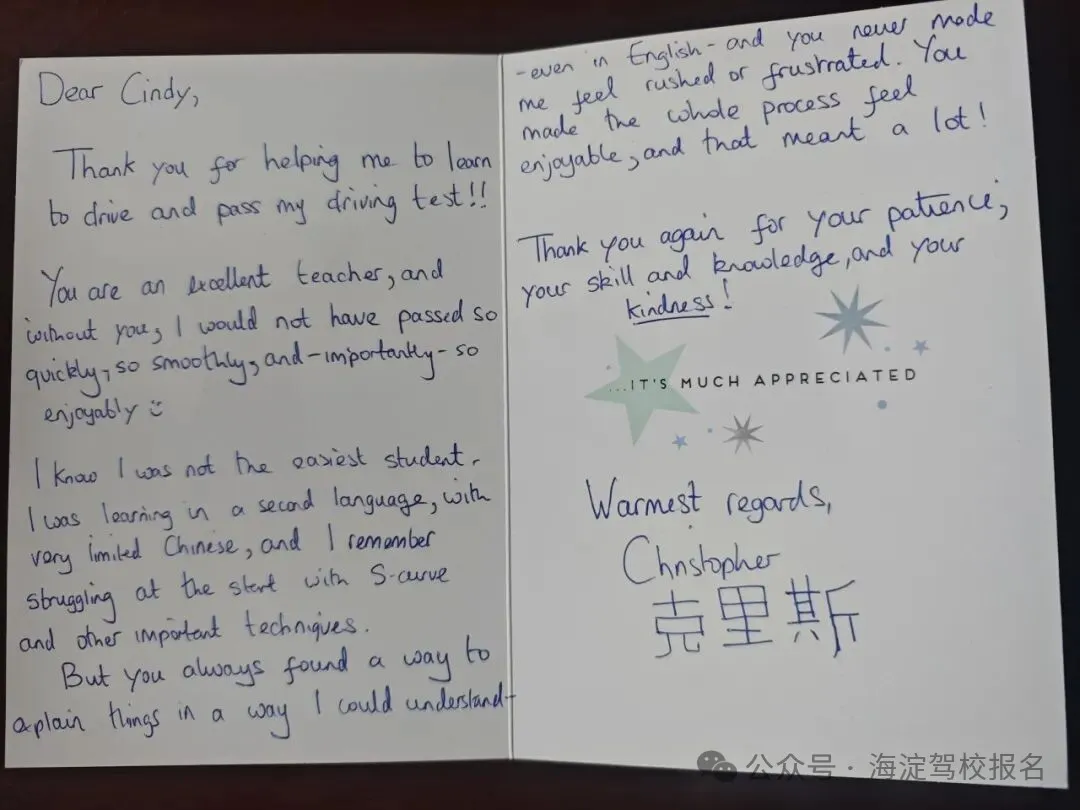 Dear Cindy,
Thank you for helping me to learn
to drive and pass my driving test!!
You are an excellent teacher, and
without you, I would not have passed so
quickly, so smoothly, and - importantly - so
enjoyably
I know I was not the easiest student.
I was learning in a second language, with
very limited Chinese, and I remember
struggling at the start with S-curve
and other important techniques.
But you always found a way to
explain things in a way I could understand -
- even in English - and you never made
me feel rushed or frustrated. You
made the whole process feel
enjoyable, and that meant a lot!
Thank you again for your patience,
your skill and knowledge, and your
kindness!
...IT'S MUCH APPRECIATED
Warmest regards,
Christopher
克里斯
公众号 · 海淀驾校报名